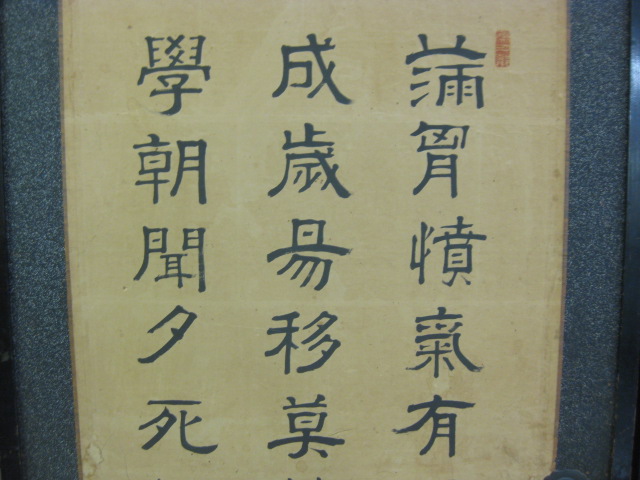 滿胷憤氣有
成歲昜移莫
學朝聞夕死